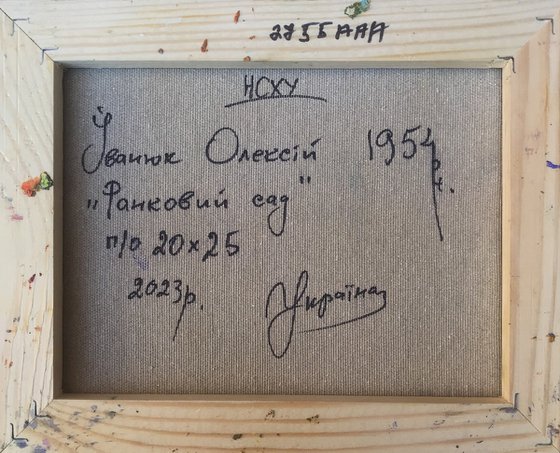 2755ААА
НСХУ
Іванюк Олексій 1954 р.н.
„Ранковий сад"
п/о 20x25
2023р.
Україна